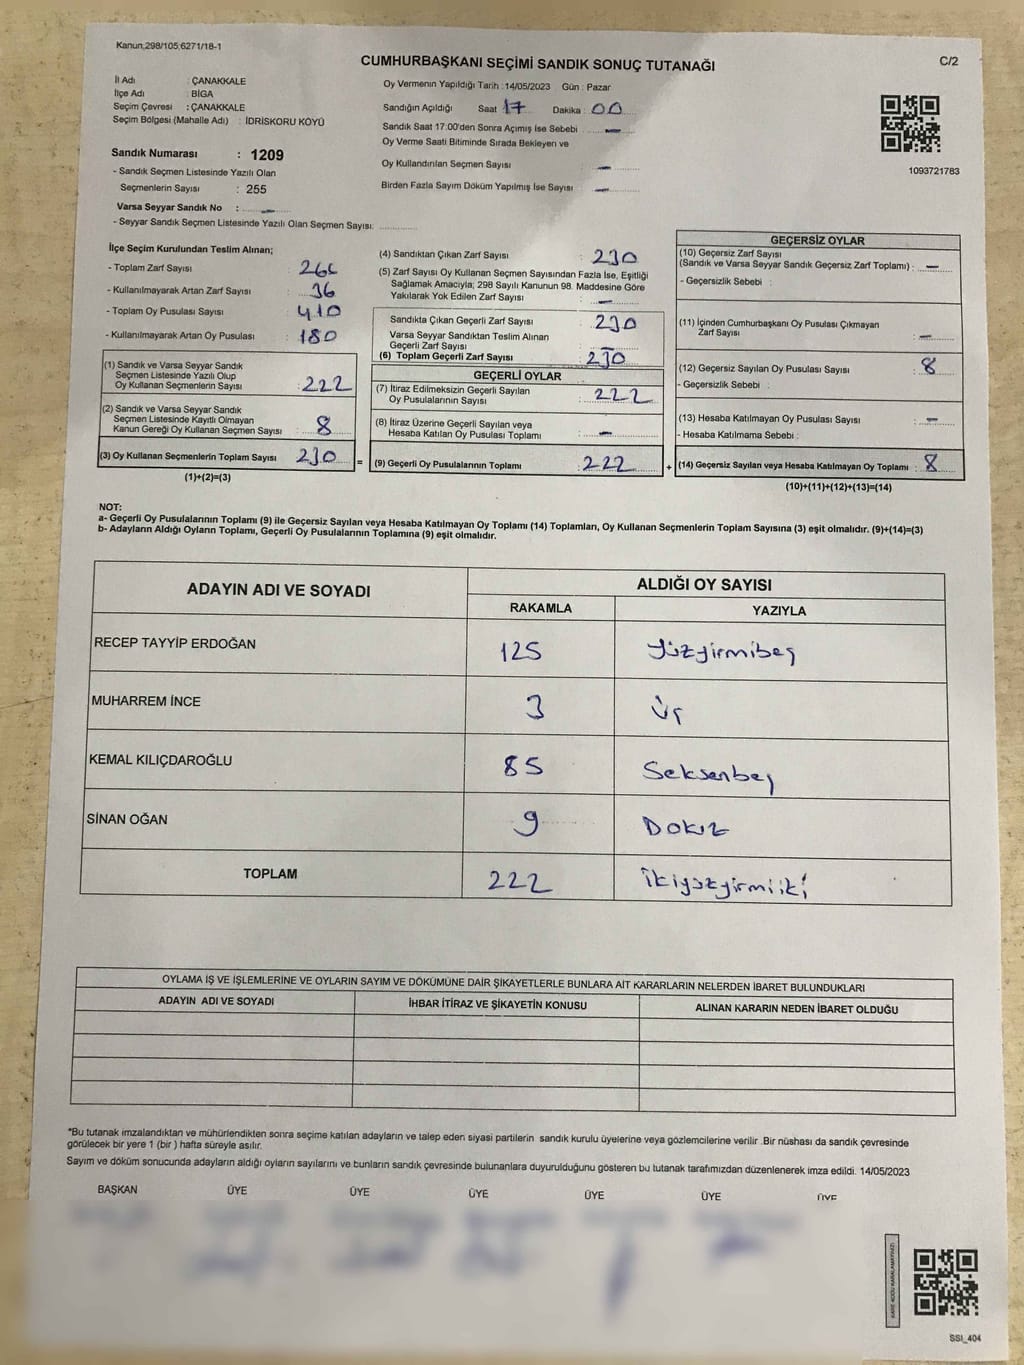 Kanun,298/105;6271/18-1
CUMHURBAŞKANI SEÇİMİ SANDIK SONUÇ TUTANAĞI
C/2
İl Adı : ÇANAKKALE
İlçe Adı : BİGA
Seçim Çevresi : ÇANAKKALE
Seçim Bölgesi (Mahalle Adı) : İDRİSKORU KÖYÜ
Sandık Numarası : 1209
- Sandık Seçmen Listesinde Yazılı Olan
Seçmenlerin Sayısı : 255
Varsa Seyyar Sandık No : –
- Seyyar Sandık Seçmen Listesinde Yazılı Olan Seçmen Sayısı:
Oy Vermenin Yapıldığı Tarih : 14/05/2023 Gün : Pazar
Sandığın Açıldığı Saat 17 Dakika : 00
Sandık Saat 17:00'den Sonra Açımış İse Sebebi –
Oy Verme Saati Bitiminde Sırada Bekleyen ve
Oy Kullandırılan Seçmen Sayısı –
Birden Fazla Sayım Döküm Yapılmış İse Sayısı –
1093721783
İlçe Seçim Kurulundan Teslim Alınan;
- Toplam Zarf Sayısı
- Kullanılmayarak Artan Zarf Sayısı : 36
- Toplam Oy Pusulası Sayısı : 410
- Kullanılmayarak Artan Oy Pusulası : 180
(1) Sandık ve Varsa Seyyar Sandık
Seçmen Listesinde Yazılı Olup
Oy Kullanan Seçmenlerin Sayısı : 222
(2) Sandık ve Varsa Seyyar Sandık
Seçmen Listesinde Kayıtlı Olmayan
Kanun Gereği Oy Kullanan Seçmen Sayısı : 8
(3) Oy Kullanan Seçmenlerin Toplam Sayısı : 230 =
(1)+(2)=(3)
(4) Sandıktan Çıkan Zarf Sayısı : 230
(5) Zarf Sayısı Oy Kullanan Seçmen Sayısından Fazla İse, Eşitliği
Sağlamak Amacıyla; 298 Sayılı Kanunun 98. Maddesine Göre
Yakılarak Yok Edilen Zarf Sayısı : –
Sandıkta Çıkan Geçerli Zarf Sayısı : 230
Varsa Seyyar Sandıktan Teslim Alınan
Geçerli Zarf Sayısı : –
(6) Toplam Geçerli Zarf Sayısı : 230
GEÇERLİ OYLAR
(7) İtiraz Edilmeksizin Geçerli Sayılan
Oy Pusulalarının Sayısı : 222
(8) İtiraz Üzerine Geçerli Sayılan veya
Hesaba Katılan Oy Pusulası Toplamı : –
(9) Geçerli Oy Pusulalarının Toplamı : 222 +
GEÇERSİZ OYLAR
(10) Geçersiz Zarf Sayısı
(Sandık ve Varsa Seyyar Sandık Geçersiz Zarf Toplamı) : –
- Geçersizlik Sebebi :
(11) İçinden Cumhurbaşkanı Oy Pusulası Çıkmayan
Zarf Sayısı : –
(12) Geçersiz Sayılan Oy Pusulası Sayısı : 8
- Geçersizlik Sebebi :
(13) Hesaba Katılmayan Oy Pusulası Sayısı : –
- Hesaba Katılmama Sebebi :
(14) Geçersiz Sayılan veya Hesaba Katılmayan Oy Toplamı : 8
(10)+(11)+(12)+(13)=(14)
NOT:
a- Geçerli Oy Pusulalarının Toplamı (9) ile Geçersiz Sayılan veya Hesaba Katılmayan Oy Toplamı (14) Toplamları, Oy Kullanan Seçmenlerin Toplam Sayısına (3) eşit olmalıdır. (9)+(14)=(3)
b- Adayların Aldığı Oyların Toplamı, Geçerli Oy Pusulalarının Toplamına (9) eşit olmalıdır.
ADAYIN ADI VE SOYADI
ALDIĞI OY SAYISI
RAKAMLA YAZIYLA
RECEP TAYYİP ERDOĞAN 125 Yüzyirmibeş
MUHARREM İNCE 3 Üç
KEMAL KILIÇDAROĞLU 85 Seksenbeş
SİNAN OĞAN 9 Dokız
TOPLAM 222 İkiyüzyirmiiki
OYLAMA İŞ VE İŞLEMLERİNE VE OYLARIN SAYIM VE DÖKÜMÜNE DAİR ŞİKAYETLERLE BUNLARA AİT KARARLARIN NELERDEN İBARET BULUNDUKLARI
ADAYIN ADI VE SOYADI İHBAR İTİRAZ VE ŞİKAYETİN KONUSU ALINAN KARARIN NEDEN İBARET OLDUĞU
*Bu tutanak imzalandıktan ve mühürlendikten sonra seçime katılan adayların ve talep eden siyasi partilerin sandık kurulu üyelerine veya gözlemcilerine verilir .Bir nüshası da sandık çevresinde
görülecek bir yere 1 (bir ) hafta süreyle asılır.
Sayım ve döküm sonucunda adayların aldığı oyların sayılarını ve bunların sandık çevresinde bulunanlara duyurulduğunu gösteren bu tutanak tarafımızdan düzenlenerek imza edildi. 14/05/2023
BAŞKAN ÜYE ÜYE ÜYE ÜYE ÜYE ÜYE
KARE KODU KARALAMAYINIZ!
SSI_404